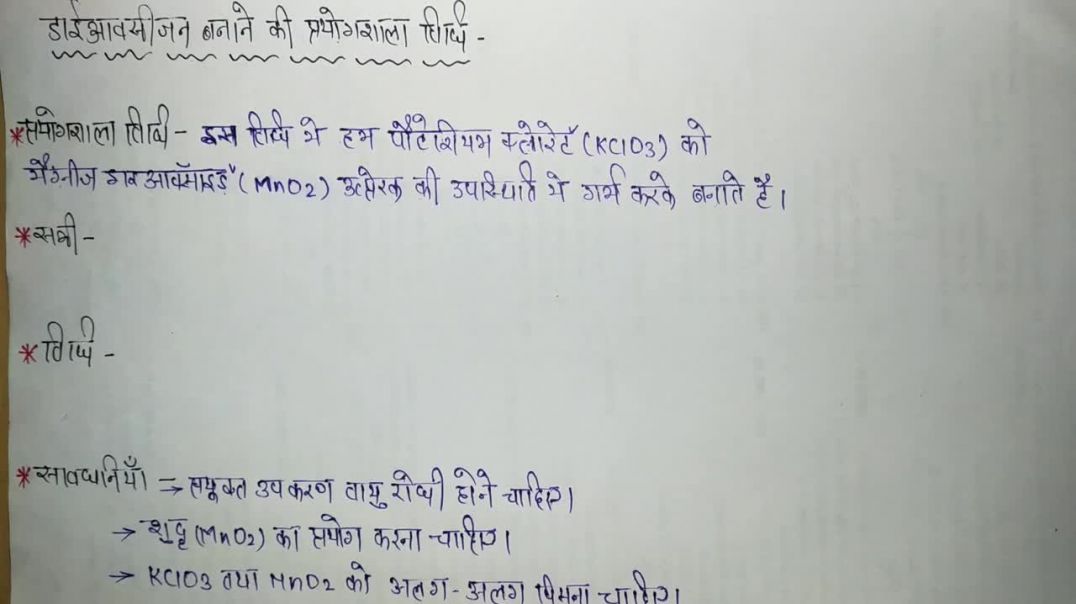 डाईआक्सीजन बनाने की प्रयोगशाला विधि -
*प्रयोगशाला विधि - इस विधि में हम पौटेशियम क्लोरेट (KClO3) को
मैंगनीज डाइ आक्साइड (MnO2) उत्प्रेरक की उपस्थिति में गर्म करके बनाते है।
*
*विधि -
*सावधानियाँ → प्रयुक्त उपकरण वायु रोधी होने चाहिए।
→ शुद्ध (MnO2) का प्रयोग करना चाहिए।
→ KClO3 तथा MnO2 को अलग-अलग पिसना चाहिए।